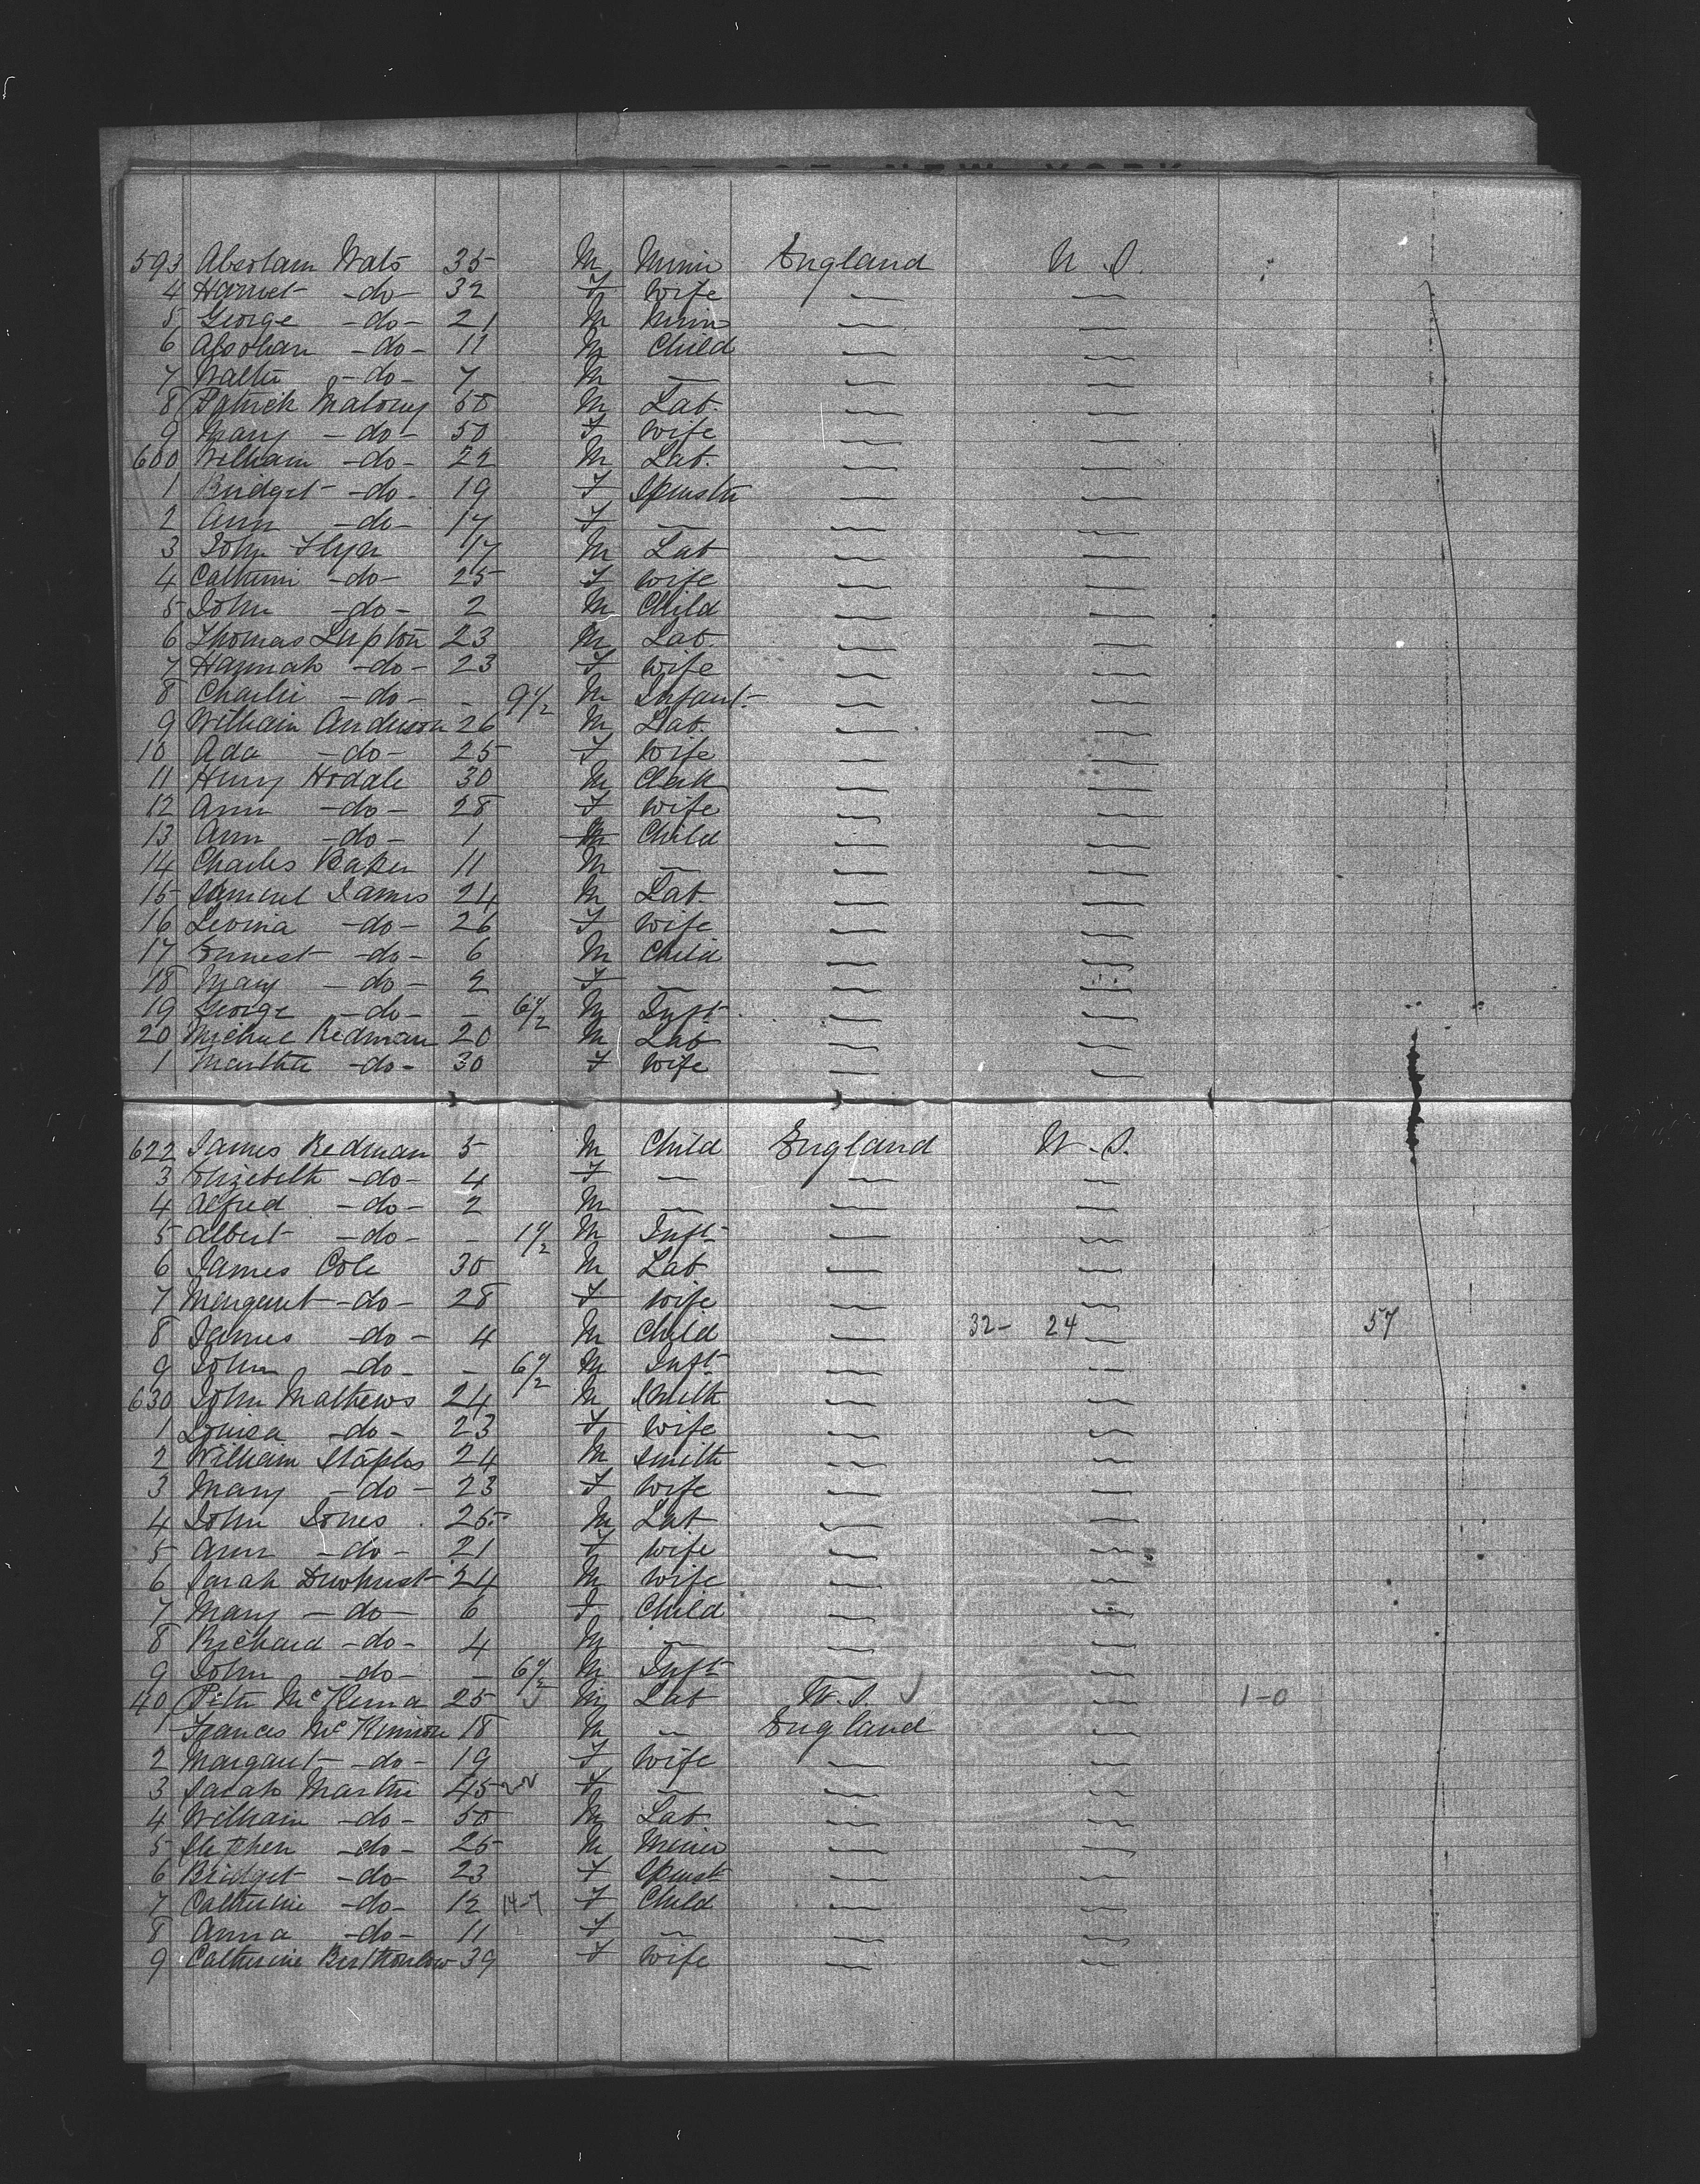 593 Absolam Wats 35 M Minir England U.S.
4 Harriet -do- 32 F Wife
5 George -do- 21 M Minir
6 Absolam -do- 11 M Child
7 Walter -do- 7 M
8 Patrick Malony 50 M Lab.
9 Mary -do- 50 F Wife
600 William -do- 22 M Lab.
1 Bridget -do- 19 F Spinster
2 Ann -do- 17 F
3 John 17 M Lab
4 Catherine -do- 25 F Wife
5 John -do- 2 M Child
6 Thomas Lupton 23 M Lab.
7 Hannah -do- 23 F Wife
8 Charlie -do- - 9/12 M Infant
9 William Anderson 26 M Lab.
10 Ada -do- 25 F Wife
11 Henry Hodale 30 M Clerk
12 Ann -do- 28 F Wife
13 Ann -do- 1 M Child
14 Charles Baker 11 M
15 Samuel James 24 M Lab.
16 Levina -do- 26 F Wife
17 Ernest -do- 6 M Child
18 Mary -do- 2 F
19 George -do- - 6/12 M Inft
20 Michael Redman 20 M Lab
1 Martha -do- 30 F Wife
622 James Redman 5 M Child England U.S.
3 Elizebeth -do- 4 F
4 Alfred -do- 2 M
5 Albert -do- - 1/12 M Inft
6 James Cole 30 M Lab
7 Margaret -do- 28 F Wife
8 James -do- 4 M Child 32- 24 57
9 John -do- - 6/12 M Inft
630 John Mathews 24 M Smith
1 Louisa -do- 23 F Wife
2 William Staples 24 M Smith
3 Mary -do- 23 F Wife
4 John Jones 25 M Lab
5 Ann -do- 21 F Wife
6 Sarah Dewhurst 24 M Wife
7 Mary -do- 6 F Child
8 Richard -do- 4 M
9 John -do- - 6/12 M Inft
40 Peter McKenna 25 M Lab U.S. 1-0
1 Frances McKinnon 18 M England
2 Margaret -do- 19 F Wife
3 Sarah Martin 45 F
4 William -do- 50 M Lab
5 Stephen -do- 25 M Minir
6 Bridget -do- 23 F Spinst
7 Catherine -do- 12 14-7 F Child
8 Anna -do- 11 F
9 Catherine 39 F Wife